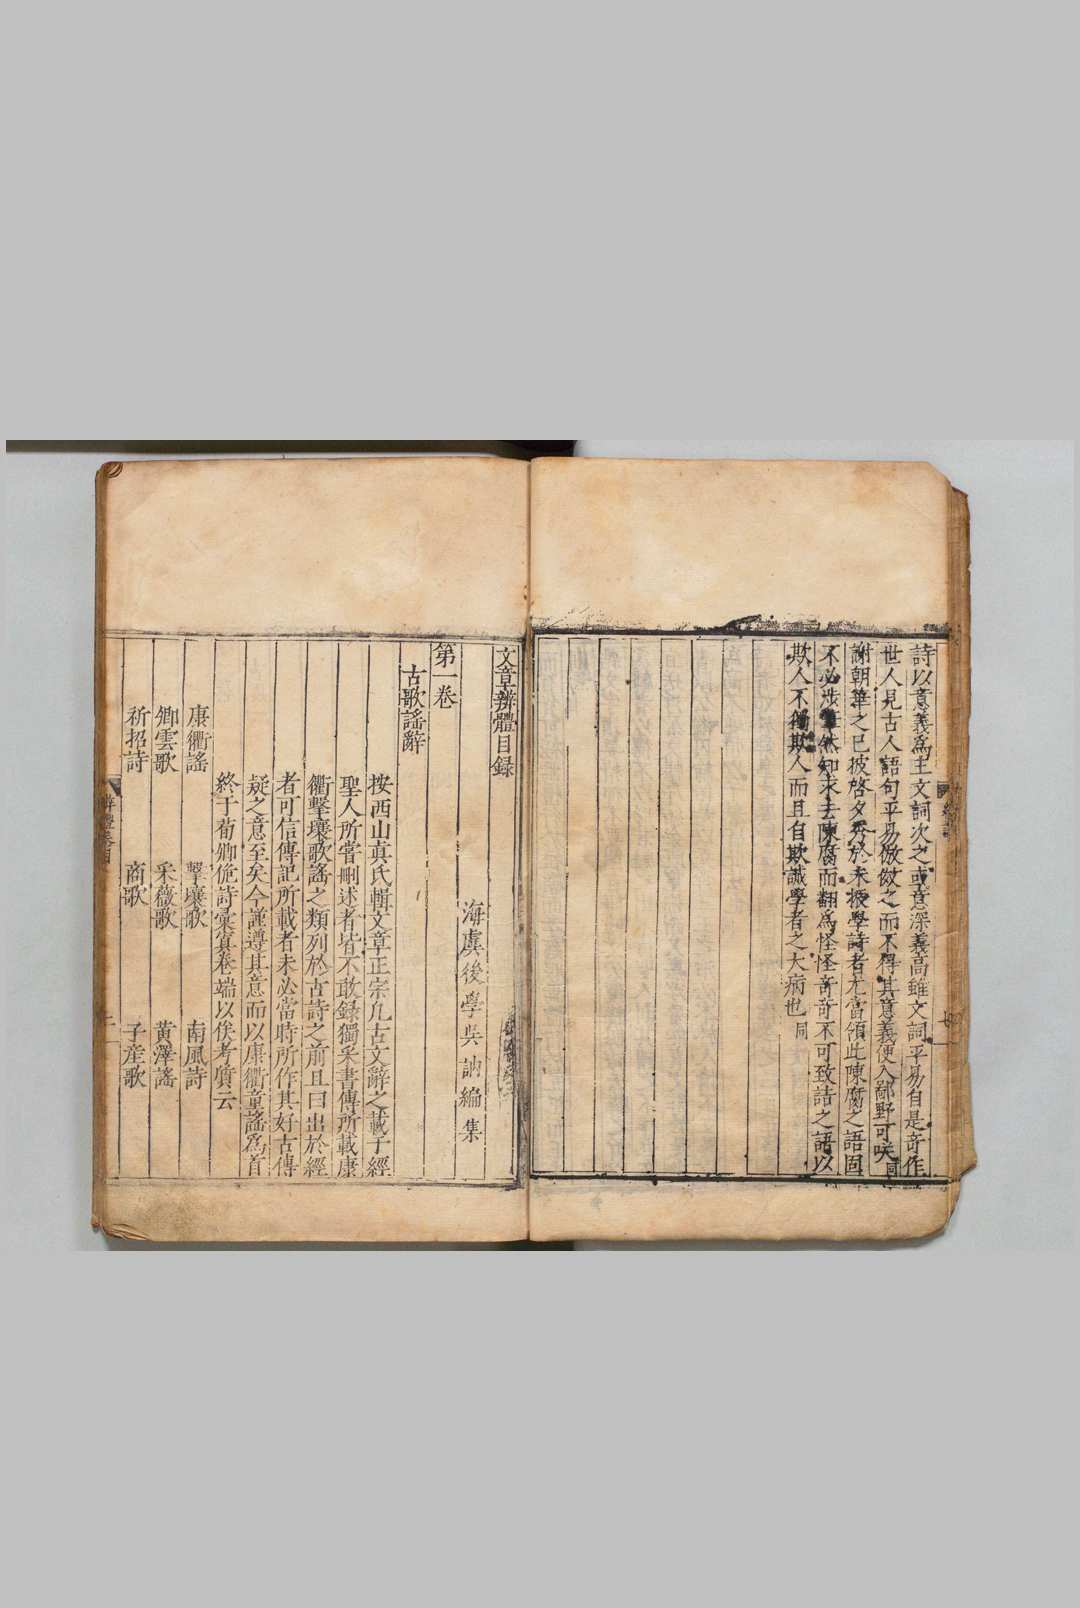 詩以意義爲主文詞次之或意深義高雖文詞平易自是奇作
世人見古人語句平易倣傚之而不得其意義便入鄙野可咲 同
謝朝華之已披啓夕秀於未振學詩者尤當領此陳腐之語固
不必涉筆然知求去陳腐而翻爲怪怪奇奇不可致詰之語以
欺人不獨欺人而且自欺誠學者之大病也 同
文章辨體目録
海虞後學吳訥編集
第一卷
古歌謠辭
按西山真氏輯文章正宗凡古文辭之載于經
聖人所嘗刪述者皆不敢録獨采書傳所載康
衢擊壤歌謠之類列於古詩之前且曰出於經
者可信傳記所載者未必當時所作其好古傳
疑之意至矣今謹遵其意而以康衢童謠爲首
終于荀卿佹詩彙寘卷端以俟考質云
康衢謠 擊壤歌 南風詩
卿雲歌 采薇歌 黃澤謠
祈招詩 商歌 子產歌
辨體卷目
一